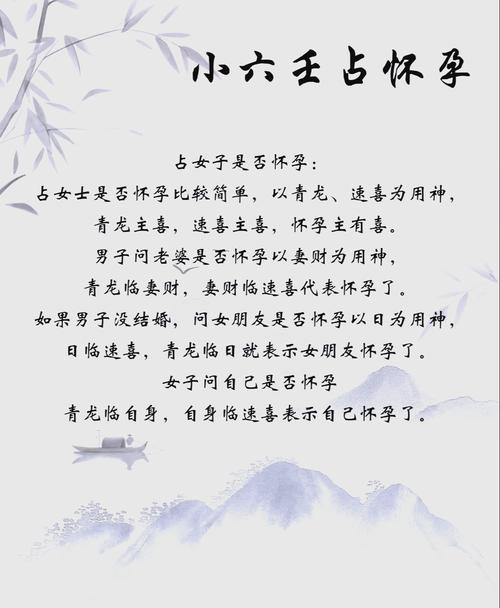 小六壬占怀孕
占女子是否怀孕：
占女士是否怀孕比较简单，以青龙、速喜为用神，
青龙主喜，速喜主喜，怀孕主有喜。
男子问老婆是否怀孕以妻财为用神，
青龙临妻财，妻财临速喜代表怀孕了。
如果男子没结婚，问女朋友是否怀孕以日为用神，
日临速喜，青龙临日就表示女朋友怀孕了。
女子问自己是否怀孕
青龙临自身，自身临速喜表示自己怀孕了。